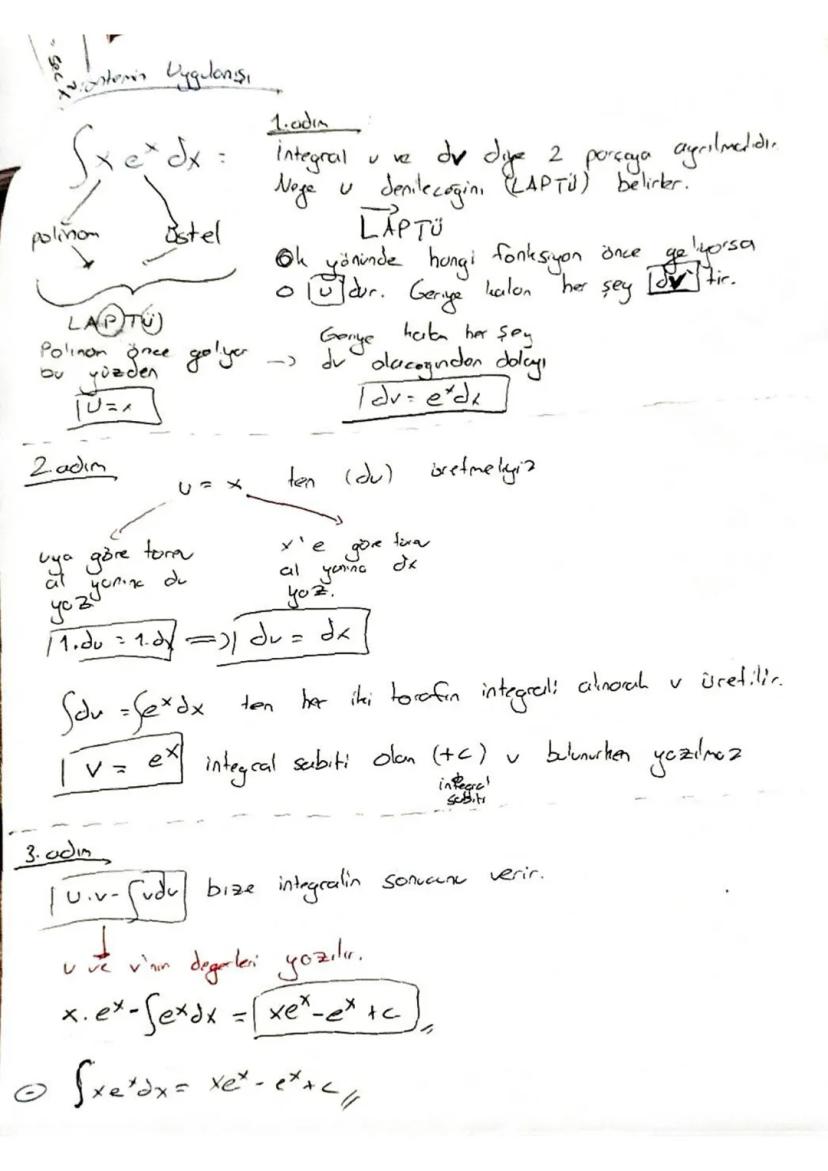 Yöntemin Uygulanışı
1. adım
∫x eˣ dx =
integral u ve dv diye 2 parçaya ayrılmalıdır.
Neye u denileceğini (LAPTÜ) belirler.
polinom üstel
LAPTÜ
Ok yönünde hangi fonksiyon önce geliyorsa
o u dur. Geriye kalan her şey dv tir.
LAPTÜ
Polinom önce geliyor
bu yüzden
U = x
→ Geriye kalan her şey
dv olacağından dolayı
dv = eˣdx
2. adım
u = x ten (du) üretmeliyiz
uya göre türev
al yanına du
yaz
x'e göre türev
al yanına dx
yaz.
1.du = 1.dx => du = dx
∫dv = ∫eˣdx ten her iki tarafın integrali alınarak v üretilir.
V = eˣ integral sabiti olan (+c) v bulunurken yazılmaz
integral
sabiti
3. adım
U.v - ∫vdu bize integralin sonucunu verir.
u ve v'nin değerleri yazılır.
x. eˣ - ∫eˣdx = xeˣ - eˣ + c //
∫xeˣdx = xeˣ - eˣ + c //